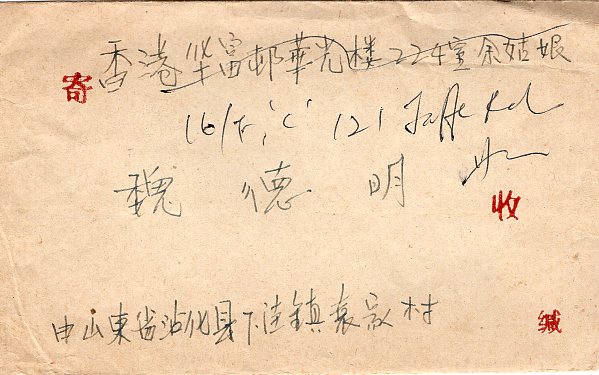 香港华富邨華光楼224室余姑娘
寄
16/F, 'C' 121 Jaffe Rd
魏德明
收
中山東省沾化县下洼鎮袁家村
缄